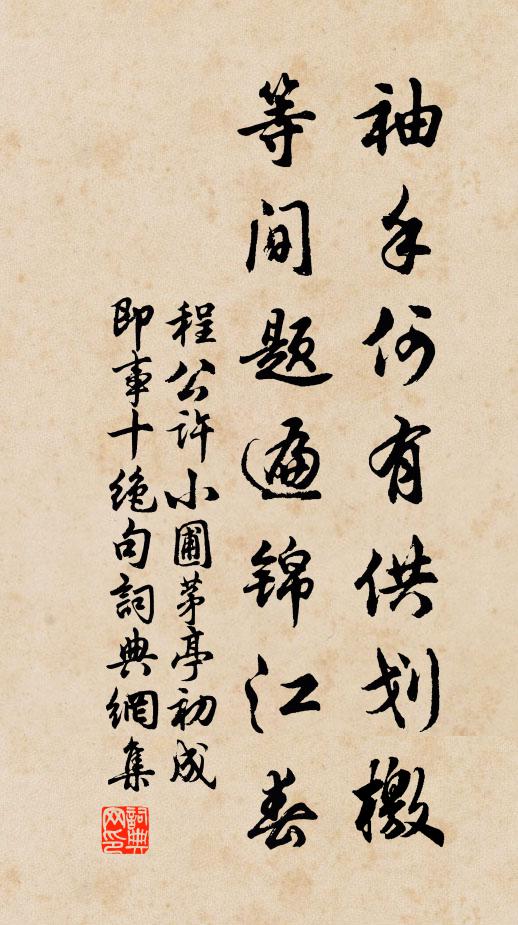 袖手何有供划檄
等闲题遍锦江春
程公许小圃茅亭初成
即事十绝句詞典網集
詞典网印